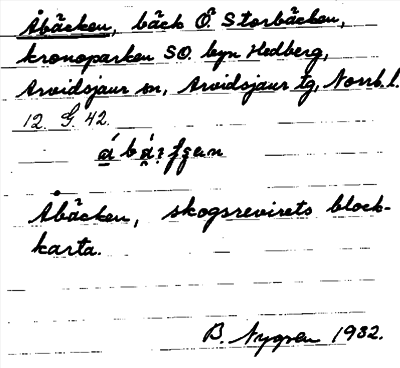 Åbäcken, bäck Ö. Storbäcken,
kronoparken SO. byn Hedberg,
Arvidsjaur sn, Arvidsjaur tg, Norrb. l.
12 G. 42.
Åbäcken, skogsrevirets block-
karta.
B. Nygren 1932.